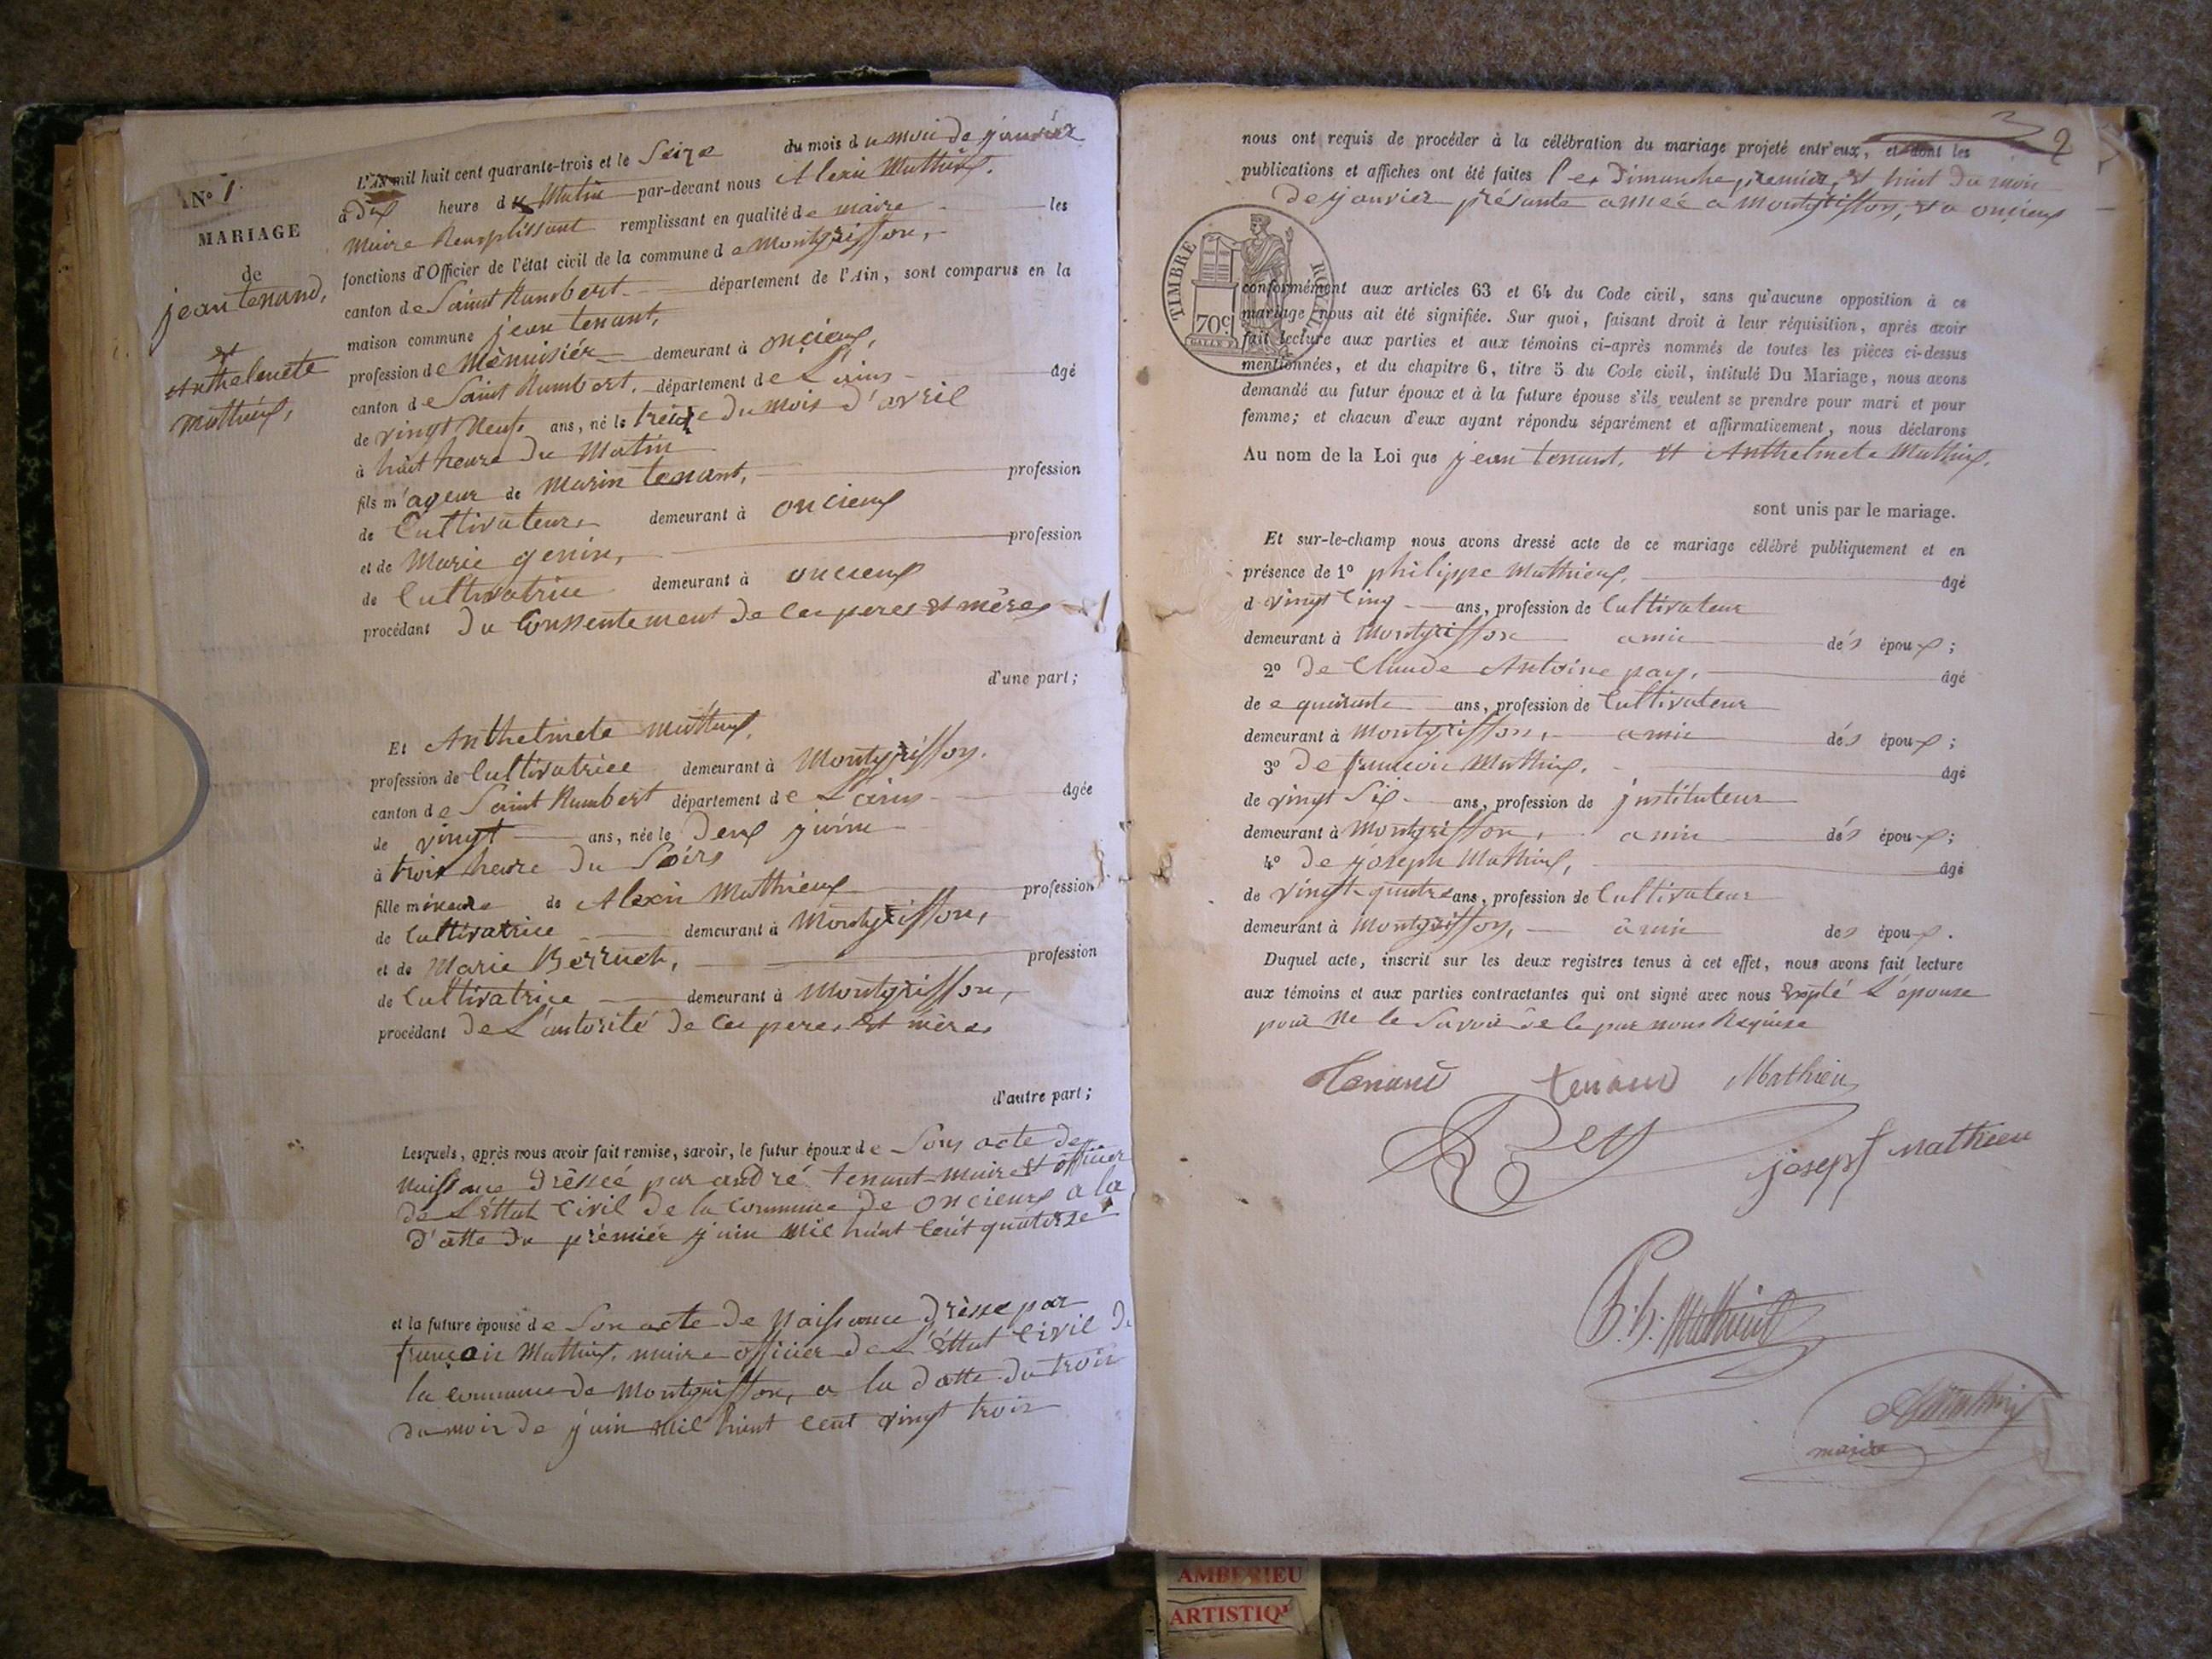 N° 1
MARIAGE
de
jean tenand,
et
Anthelmete
Mathieux,
L'AN mil huit cent quarante-trois et le Seize du mois du moi de janvier
à dix heure du Matin par-devant nous Alexis Mathieux.
Maire Remplissant remplissant en qualité de maire les
fonctions d'Officier de l'état civil de la commune de Montgriffon,
canton de Saint Rambert département de l'Ain, sont comparus en la
maison commune jean tenant,
profession de Menuisiér demeurant à oncieux,
canton de Saint Rumbert. département de L'ains âgé
de vingt Neuf ans, né le treize du mois d'avril
à huit heure du Matin
fils m'ageur de Marin tenant, profession
de Cultivateur demeurant à oncieux
et de Marie genin, profession
de Cultivatrice demeurant à oncieux
procédant du Conssentement de ces peres et mères
d'une part;
Et Anthelmete Mathieux,
profession de Cultivatrice demeurant à Montgriffon.
canton de Saint Rumbert département de L'ains âgée
de vingt ans, née le deux juin
à trois heure du Soirs
fille mineure de Alexis Mathieux profession
de Cultivatrice demeurant à Montgriffon,
et de Marie Berruet, profession
de Cultivatrice demeurant à Montgriffon,
procédant de L'autorité de ces peres et mères
d'autre part;
Lesquels, après nous avoir fait remise, savoir, le futur époux de Sons acte de
Naissance dréssée par andré tenant maire et officier
de L'éttat Civil de la Commune de oncieux a la
d'atte du prémiér juin Mil huint Cent quatorze
et la future épouse de Son acte de Naissance dresse par
françois Mathieux. maire officier de L'éttat Civil de
la commune de Montgriffon, a la datte du trois
du mois de juin Mil huint Cent vingt trois
2
nous ont requis de procéder à la célébration du mariage projeté entr'eux, et dont les
publications et affiches ont été faites les Dimanche, premier, et huit du mois
de janvier présante année a Montgriffon, et a oncieux
TIMBRE ROYAL
70c
conformément aux articles 63 et 64 du Code civil, sans qu'aucune opposition à ce
mariage nous ait été signifiée. Sur quoi, faisant droit à leur réquisition, après avoir
fait lecture aux parties et aux témoins ci-après nommés de toutes les pièces ci-dessus
mentionnées, et du chapitre 6, titre 5 du Code civil, intitulé Du Mariage, nous avons
demandé au futur époux et à la future épouse s'ils veulent se prendre pour mari et pour
femme; et chacun d'eux ayant répondu séparément et affirmativement, nous déclarons
Au nom de la Loi que jean tenant. et Anthelmete Mathieux.
sont unis par le mariage.
Et sur-le-champ nous avons dressé acte de ce mariage célébré publiquement et en
présence de 1° philippe Mathieux, âgé
d vingt Cinq ans, profession de Cultivateur
demeurant à Montgriffon amie dés époux;
2° de Claude Antoine pay, âgé
de quarante ans, profession de Cultivateur
demeurant à Montgriffon, amie dés époux;
3° de françois Mathieux, âgé
de vingt Six ans, profession de jnstituteur
demeurant à Montgriffon, amie dés époux;
4° de joseph Mathieux, âgé
de vingt quatre ans, profession de Cultivateur
demeurant à Montgriffon, amie des époux.
Duquel acte, inscrit sur les deux registres tenus à cet effet, nous avons fait lecture
aux témoins et aux parties contractantes qui ont signé avec nous Exepté L'épouse
pour Ne le Savoir de le par nous Requise
Tenand tenand Mathieu
joseph Mathieu
Ph. Mathieux
AMathieux
maire
AMBERIEU
ARTISTIQ